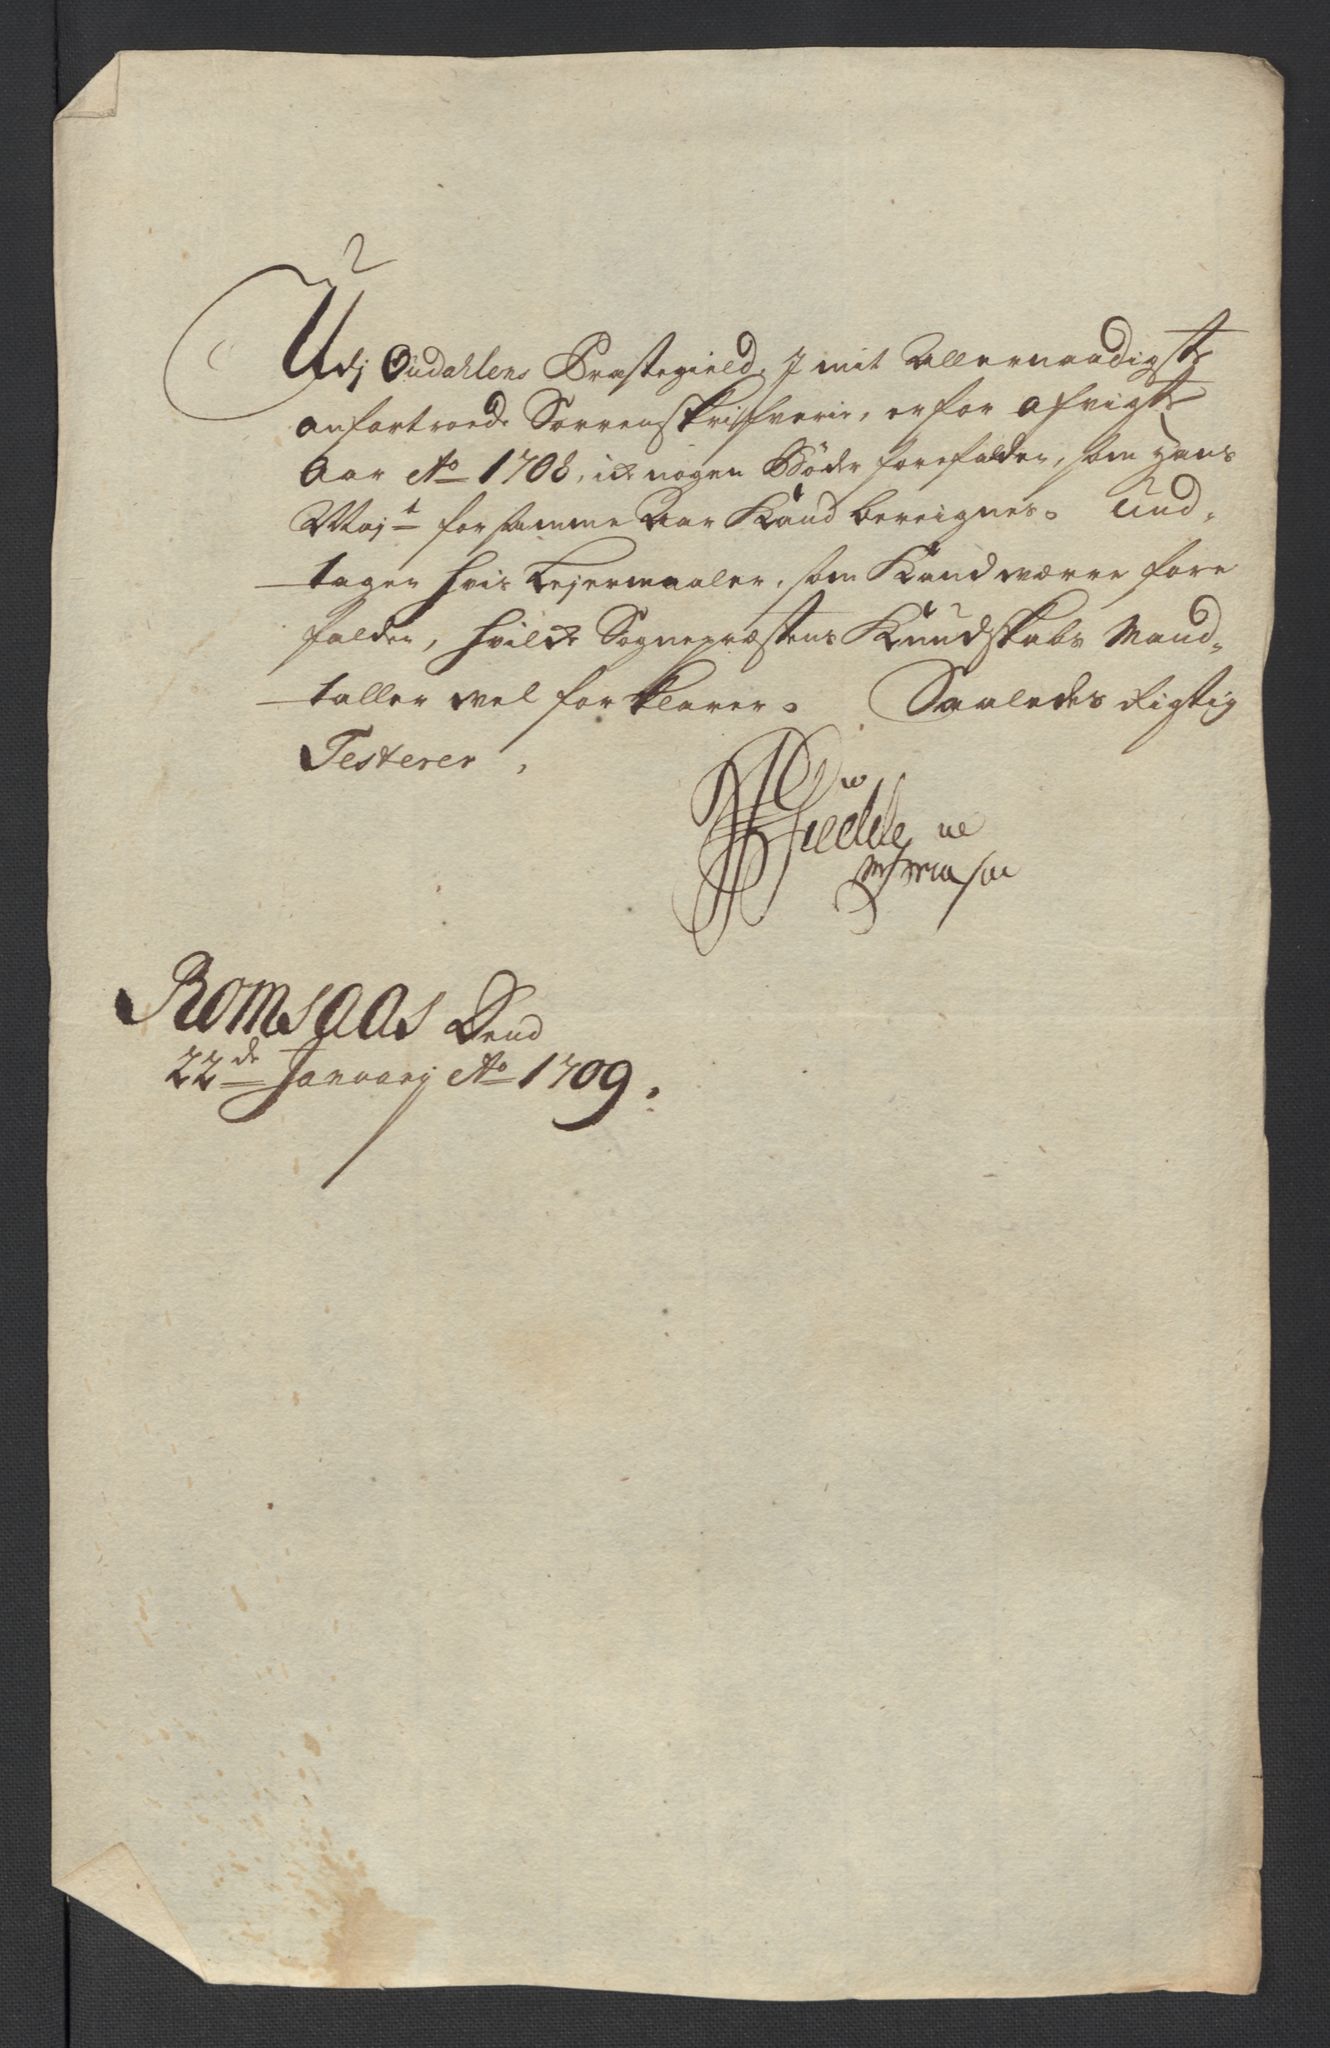 Udj Øudahlens Præstegield, J mit Allernaadigste
anfortroede Sorrenskrifverie, er for afvigte
Aar Ao 1708, icke nogen Bøder forefalden, som Hans
Mayt for samme Aar Kand bereignes. Und,
tagen hvis Lejermaaler, som Kand værre fore
falden, hvilcke Sognepræstens Kundskabs Mand,
taller vel forklarer. Saaledes Rigtig
Testerer,
Romsaas Dend
22de January Ao 1709.